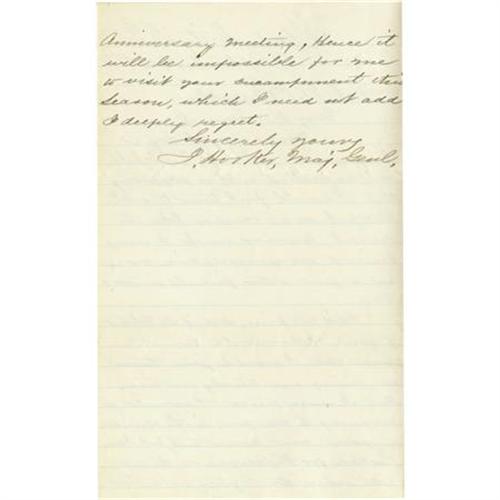 Anniversary Meeting, Hence it
will be impossible for me
to visit your encampment this
Season, which I need not add
I deeply regret.
Sincerely yours
J. Hooker, Maj, Genl,